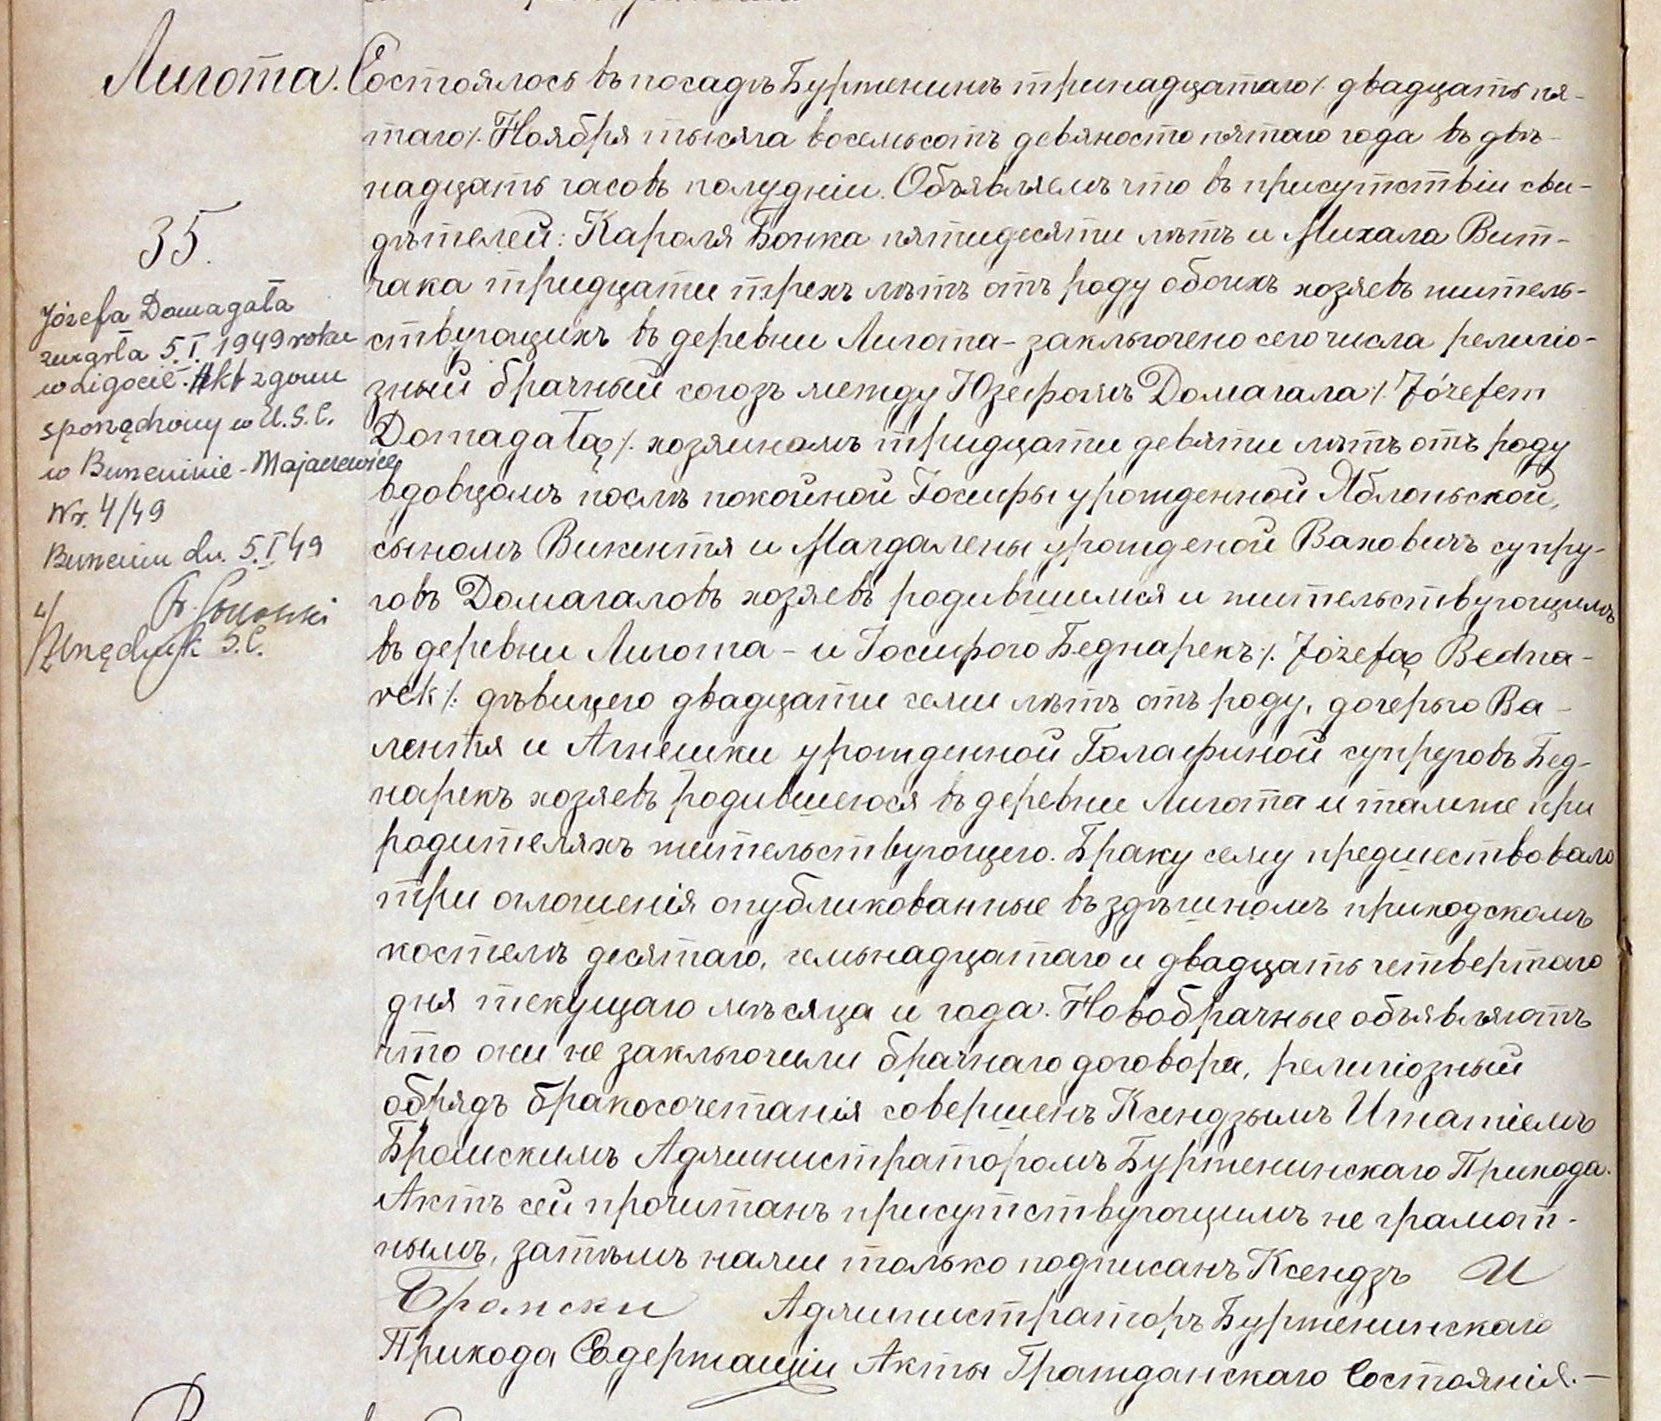 Лигота.
35.
Józefa Domagała
zmarła 5.I. 1949 roku
w Ligocie. Akt zgonu
sporządzony w U.S.C.
w Burzeninie-Majaczewice
Nr. 4/49
Burzenin dn. 5.I 49
Urzędnik S.C.
Состоялось въ посадѣ Бурженинѣ тринадцатаго /: двадцать пя-
таго /: Ноября тысяча восемьсотъ девяносто пятаго года въ двѣ-
надцать часовъ полудни. Объявляемъ что въ присутствіи сви-
дѣтелей: Кароля Бочка пятидесяти лѣтъ и Михала Вит-
чака тридцати трехъ лѣтъ отъ роду обоихъ хозяевъ житель-
ствующихъ въ деревни Лигота - заключено сего числа религіо-
зный брачный союзъ между Юзефомъ Домагала /: Józefem
Domagałą /: хозяиномъ тридцати девяти лѣтъ отъ роду
вдовцомъ послѣ покойной Іосифы урожденной Яблоньской,
сыномъ Викентя и Магдалены урожденойВаховичъ супру-
говъ Домагаловъ хозяевъ родившимся и жительствующимъ
въ деревни Лигота - и Іосифою Беднарекъ /: Józefą Bedna-
rek /: дѣвицею двадцати семи лѣтъ отъ роду, дочерью Ва-
лентя и Агнешки урожденной Галафиной супруговъ Бед-
нарекъ хозяевъ родившеюся въ деревни Лигота и тамже при
родителяхъ жительствующею. Браку сему предшествовало
три оглошенія опубликованные въ здѣшномъ приходскомъ
костелѣ десятаго, семьнадцатаго и двадцать четвертаго
дня текущаго мѣсяца и года. Новобрачные объявляютъ
что они не заключили брачнаго договора, религіозный
обрядъ бракосочетанія совершенъ Ксендзымъ Игнатіемъ
Бронскимъ Администраторомъ Бурженинскаго Прихода.
Актъ сей прочитанъ присутствующимъ не грамот-
нымъ, затѣмъ нами только подписанъ Ксендзъ И
Бронски Администраторъ Бурженинскаго
Прихода Содержащіи Акты Гражданскаго Состоянія.-